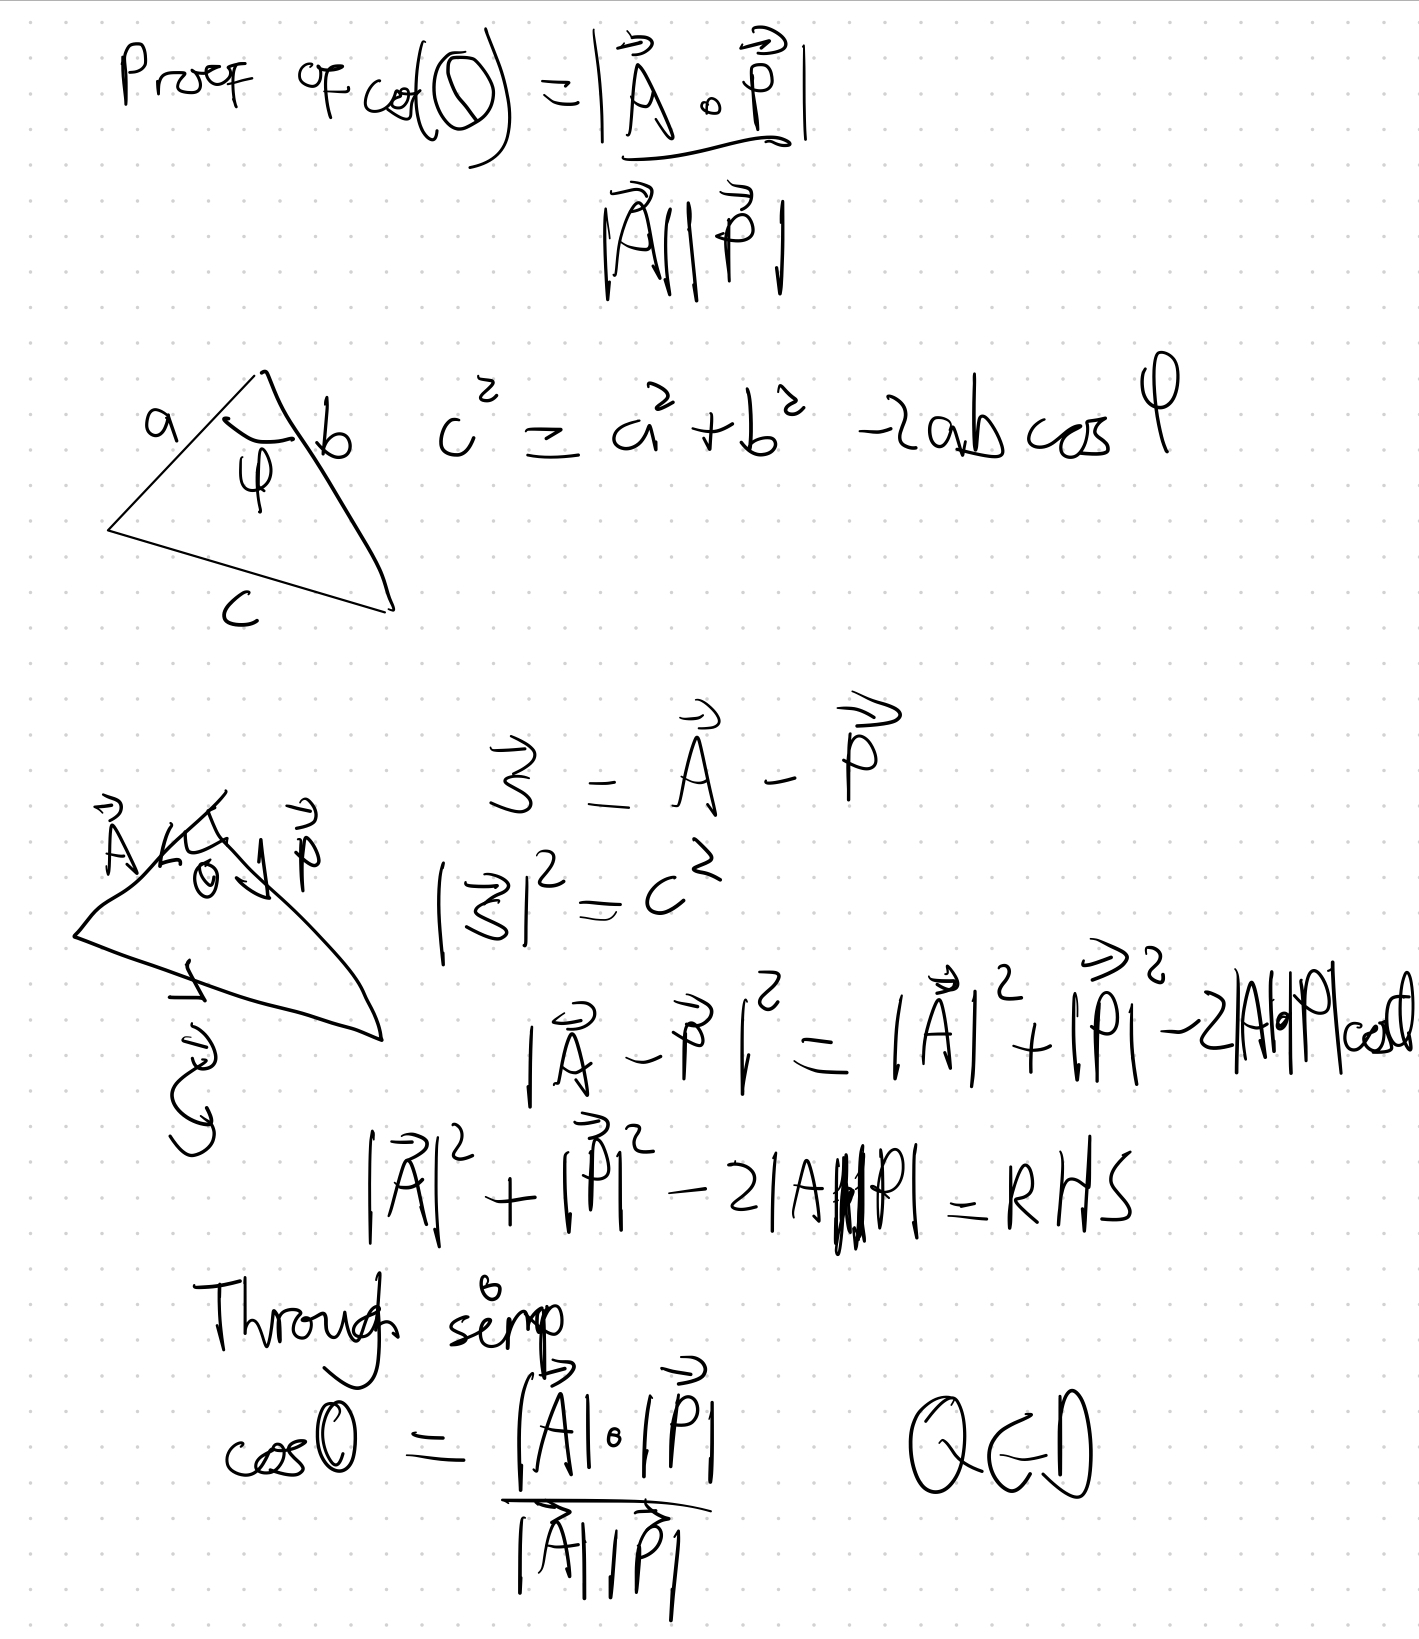 Proof of cos(θ) = |A⃗ ∘ P⃗|
|A⃗||P⃗|
a b c² = a² + b² - 2ab cos φ
φ
c
ξ⃗ = A⃗ - P⃗
A⃗ θ P⃗
|ξ⃗|² = c²
ξ⃗
|A⃗ - P⃗|² = |A⃗|² + |P⃗|² - 2|A|∘|P| cosθ
|A⃗|² + |P⃗|² - 2|A||P| = RHS
Through simp
cosθ = |A⃗|∘|P⃗| QED
|A⃗||P⃗|